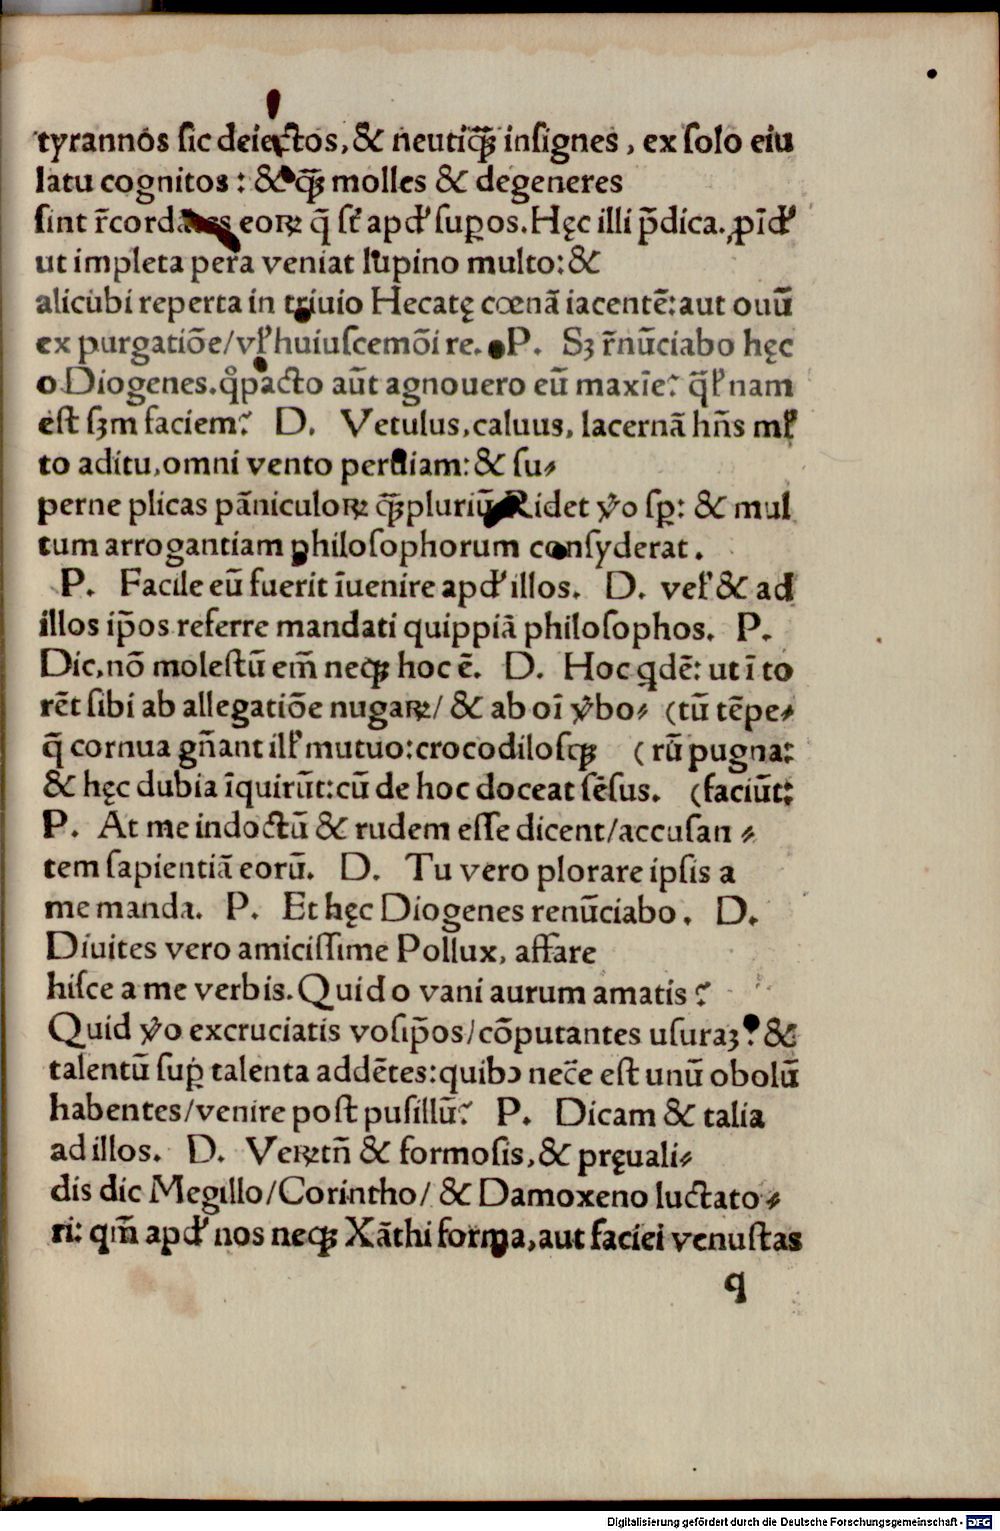 tyrannos sic deiectos, & neutiqꝫ̃ insignes, ex solo eiu
latu cognitos: & qꝫ̃ molles & degeneres
sint r̃cordātes eoꝝ q̃ st̃ apđ suꝑos. Hęc illi p̃dica. ꝓīđ
ut impleta pera veniat lupino multo: &
alicubi reperta in triuio Hecatę cœnā iacentē: aut ouū
ex purgatiōe/ vł huiuscemōi re. P. Sꝫ r̃nūciabo hęc
o Diogenes. q̊ pacto aūt agnouero eū maxīe? q̃ł nam
est sꝫm faciem? D. Vetulus, caluus, lacernā hñs mł
to aditu, omni vento perviam: & su⸗
perne plicas pāniculoꝝ qꝫ̃pluriū. Ridet ṽo sꝑ: & mul
tum arrogantiam philosophorum consyderat.
P. Facile eū fuerit īuenire apđ illos. D. veł & ad
illos ip̃os referre mandati quippiā philosophos. P.
Dic, nō molestū em̃ neqꝫ hoc ē. D. Hoc qdē: ut ī to
rēt sibi ab allegatiōe nugaꝝ/ & ab oī ṽbo⸗ (tū tēpe⸗
q̃ cornua gñant ilł mutuo: crocodilosqꝫ (rū pugna:
& hęc dubia īquirūt: cū de hoc doceat sēsus. (faciūt:
P. At me indoctū & rudem esse dicent/ accusan⸗
tem sapientiā eorū. D. Tu vero plorare ipsis a
me manda. P. Et hęc Diogenes renūciabo. D.
Diuites vero amicissime Pollux, affare
hisce a me verbis. Quid o vani aurum amatis?
Quid ṽo excruciatis vosip̃os/ cōputantes usuraꝫ? &
talentū suꝑ talenta addētes: quibꝰ nec̃e est unū obolū
habentes/ venire post pusillū? P. Dicam & talia
ad illos. D. Veꝝtñ & formosis, & pręuali⸗
dis dic Megillo/ Corintho/ & Damoxeno luctato⸗
ri: qm̃ apđ nos neqꝫ Xāthi forma, aut faciei venustas
q
Digitalisierung gefördert durch die Deutsche Forschungsgemeinschaft - DFG